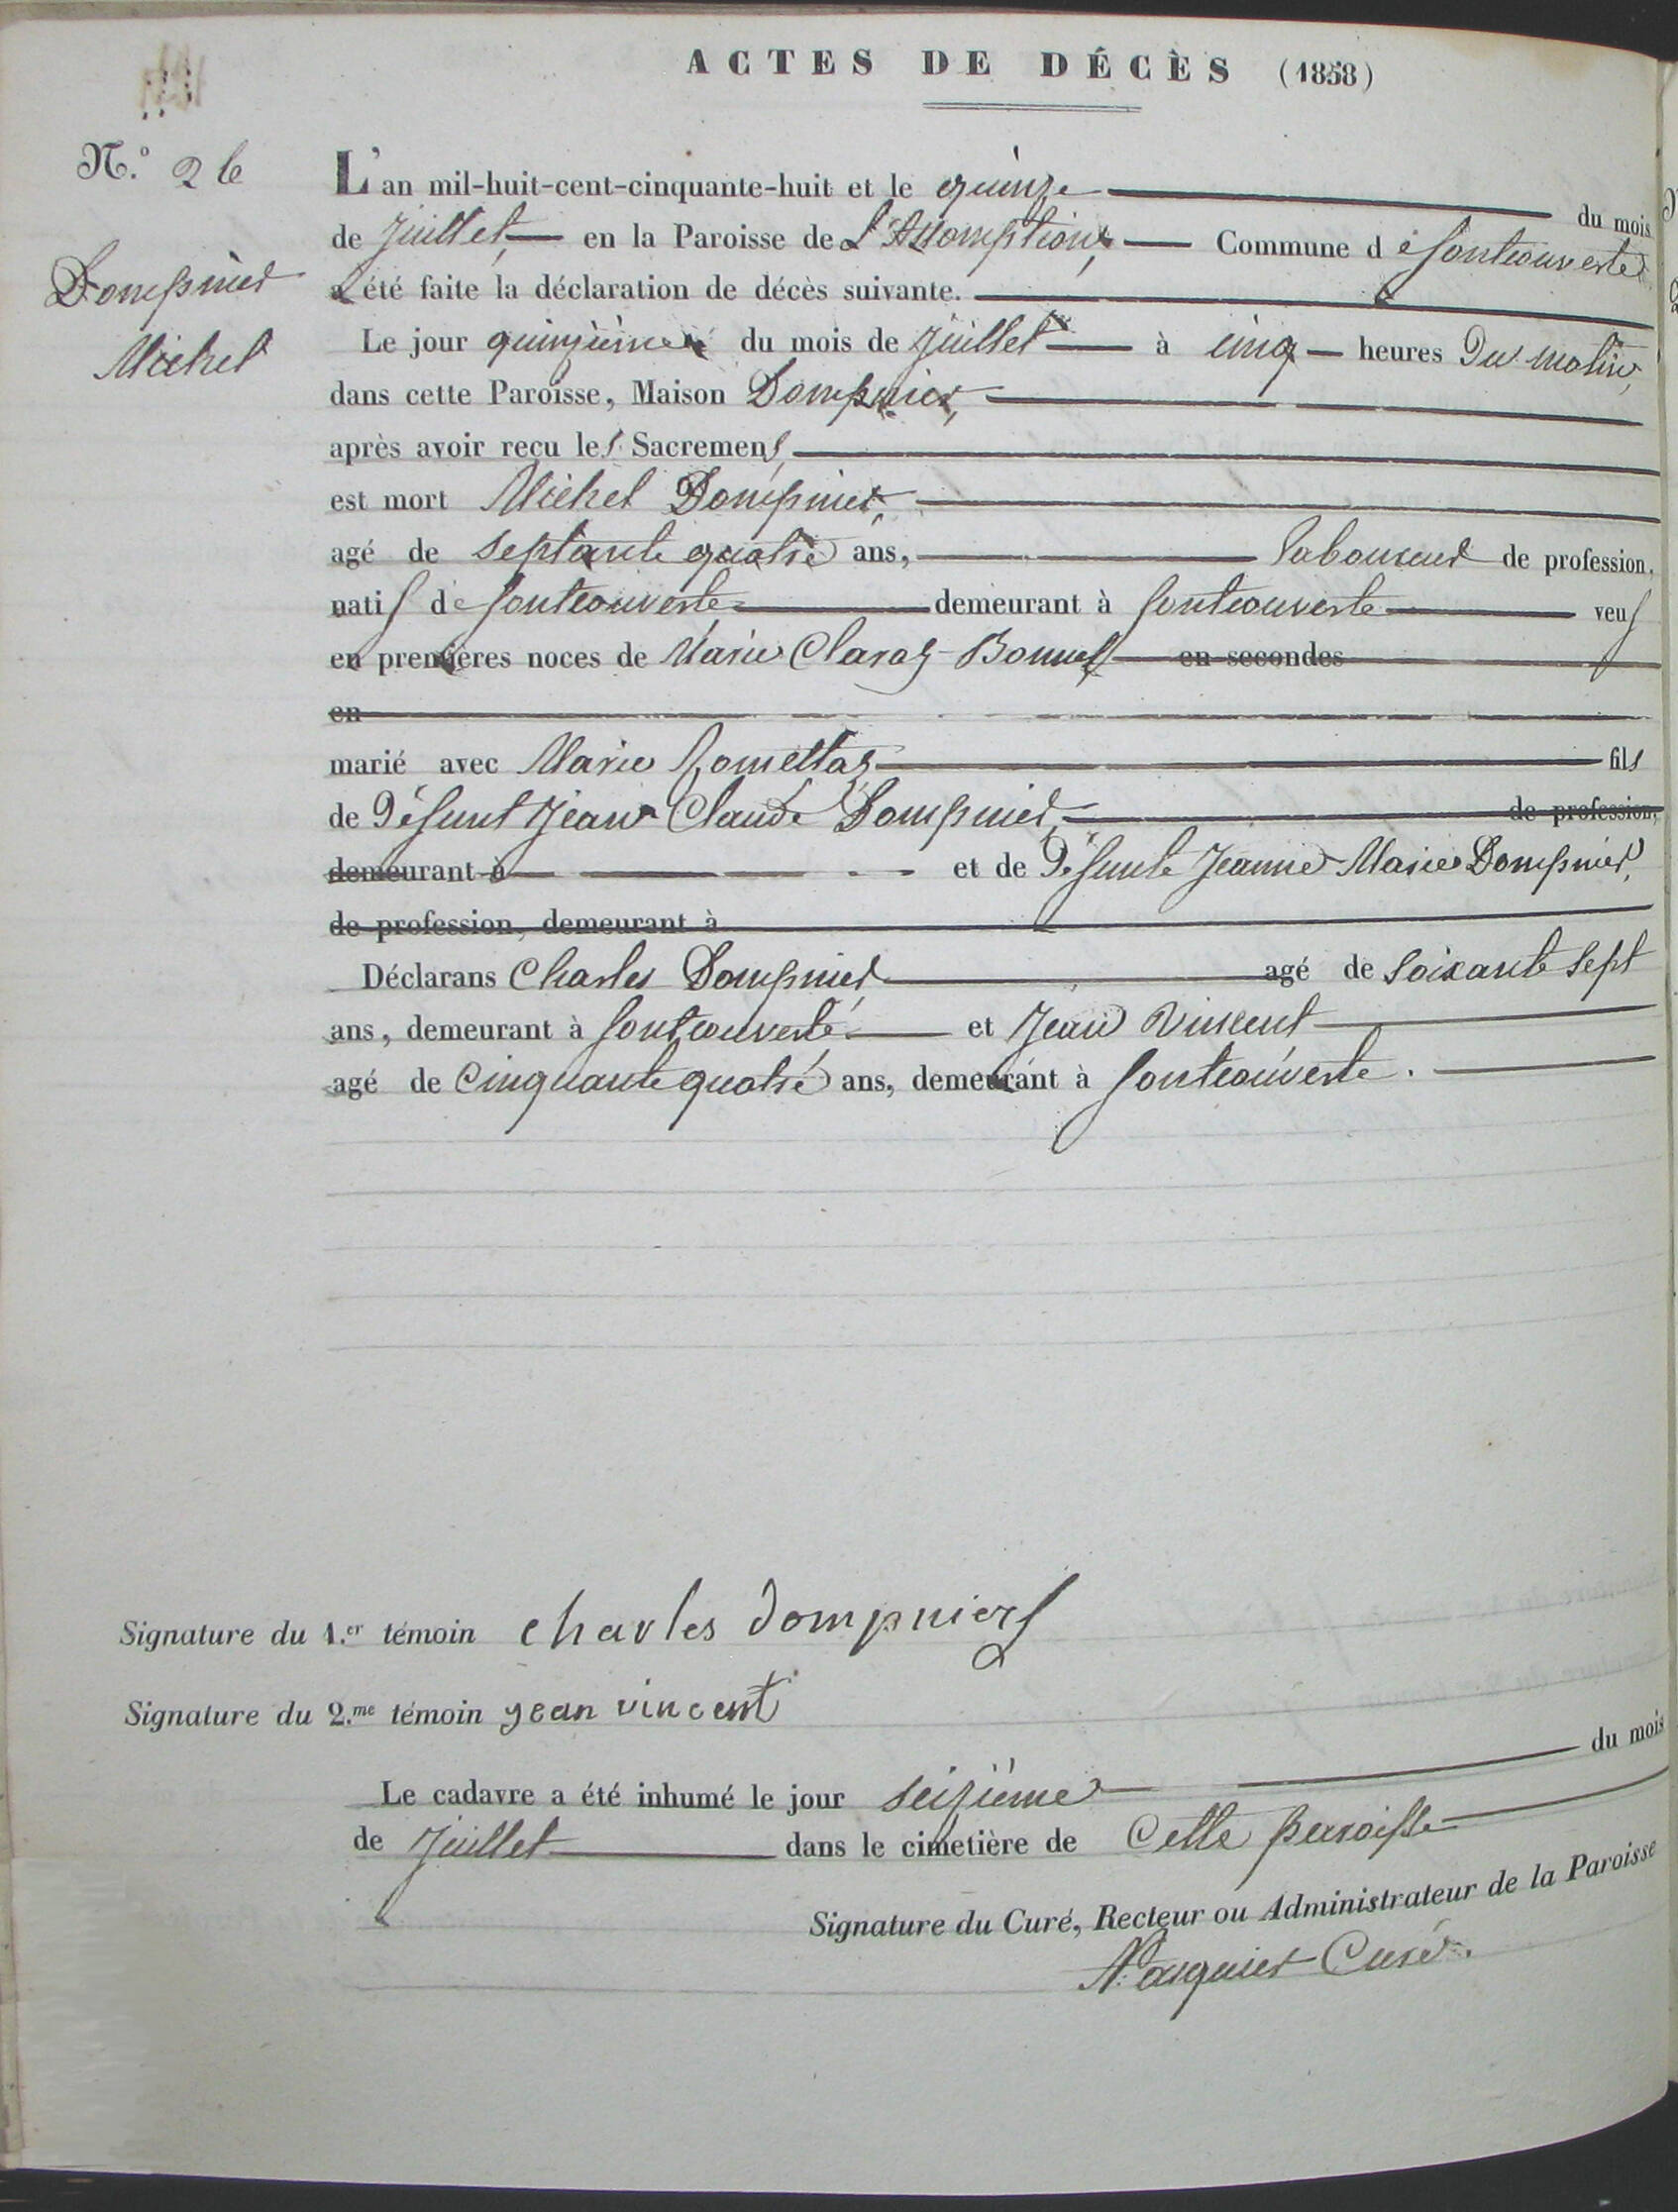 ACTES DE DÉCÈS (1858)
N.º 26
L'an mil-huit-cent-cinquante-huit et le quinze du mois
de Juillet, en la Paroisse de L'Assomption, Commune de fontcouverte
a été faite la déclaration de décès suivante.
Dompnier
Michel
Le jour quinzième du mois de Juillet à cinq heures du matin,
dans cette Paroisse, Maison Dompnier,
après avoir reçu les Sacremens,
est mort Michel Dompnier,
agé de septante quatre ans, laboureur de profession,
natif de fontcouverte, demeurant à fontcouverte veuf
en premières noces de Marie Claraz-Bonnel en secondes
en
marié avec Marie fils
de défunt Jean Claude Dompnier, de profession,
demeurant à et de défunte Jeanne Marie Dompnier,
de profession, demeurant à
Déclarans Charles Dompnier agé de soixante sept
ans, demeurant à fontcouverte et Jean Vincent
agé de cinquante quatre ans, demeurant à fontcouverte.
Signature du 1.er témoin charles dompnier
Signature du 2.me témoin jean vincent
Le cadavre a été inhumé le jour seizième du mois
de Juillet dans le cimetière de cette paroisse
Signature du Curé, Recteur ou Administrateur de la Paroisse
Curé.